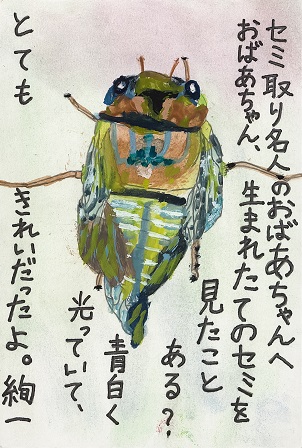 セミ取り名人のおばあちゃんへ
おばあちゃん、
生まれたてのセミを
見たこと
ある?
青白く
光っていて、
とても
きれいだったよ。絢一